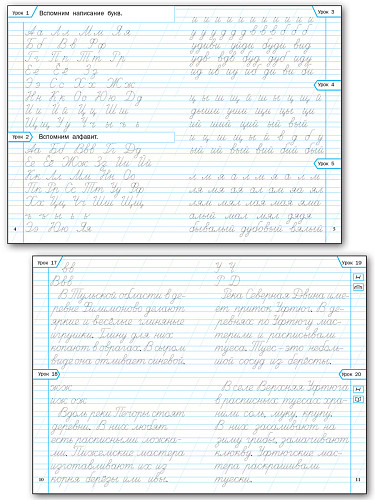 Урок 1
Вспомним написание букв.
Аа Лл Мм Яя
Бб Вв Фф
Гг Пп Тт Рр
Ее Ёё Зз
Ээ Сс Хх Жж
Нн Кк Оо Юю Дд
Ии Йй Цц Шш
Щщ Чч ы ь ъ
Урок 2
Вспомним алфавит.
Аа Бб Вв Гг Дд
Ее Ёё Жж Зз Ии Йй
Кк Лл Мм Нн Оо
Пп Рр Сс Тт Уу Фф
Хх Цц Чч Шш Щщ
ъ ы ь
Ээ Юю Яя
4
Урок 3
удиви уйди буди вид
Урок 4
Урок 5
ля мля ая ал ам яа ял
лям мял лая мая яма
алый мал мял дядя
бывалый дубовый вялый
5
Урок 17
вв
Ввв
В Тульской области в де-
ревне Филимоново делают
яркие и весёлые глиняные
игрушки. Глину для них
копают в оврагах. В сыром
виде она отливает синевой.
Урок 18
жж
жж ож
Вдоль реки Печоры стоят
деревни. В них любят
есть расписными ложка-
ми. Пижемские мастера
изготавливают их из
корня берёзы или ивы.
10
Урок 19
Ч Ч
Р Д
Река Северная Двина име-
ет приток Уфтюг. В де-
ревнях по Уфтюгу мас-
терили и расписывали
туеса. Туес - это неболь-
шой сосуд из бересты.
Урок 20
В селе Верхняя Уфтюга
в расписных туесах хра-
нили соль, муку, крупу.
В них засаливают на
зиму грибы, замачивают
клюкву. Уфтюгские мас-
тера раскрашивали
туески.
11